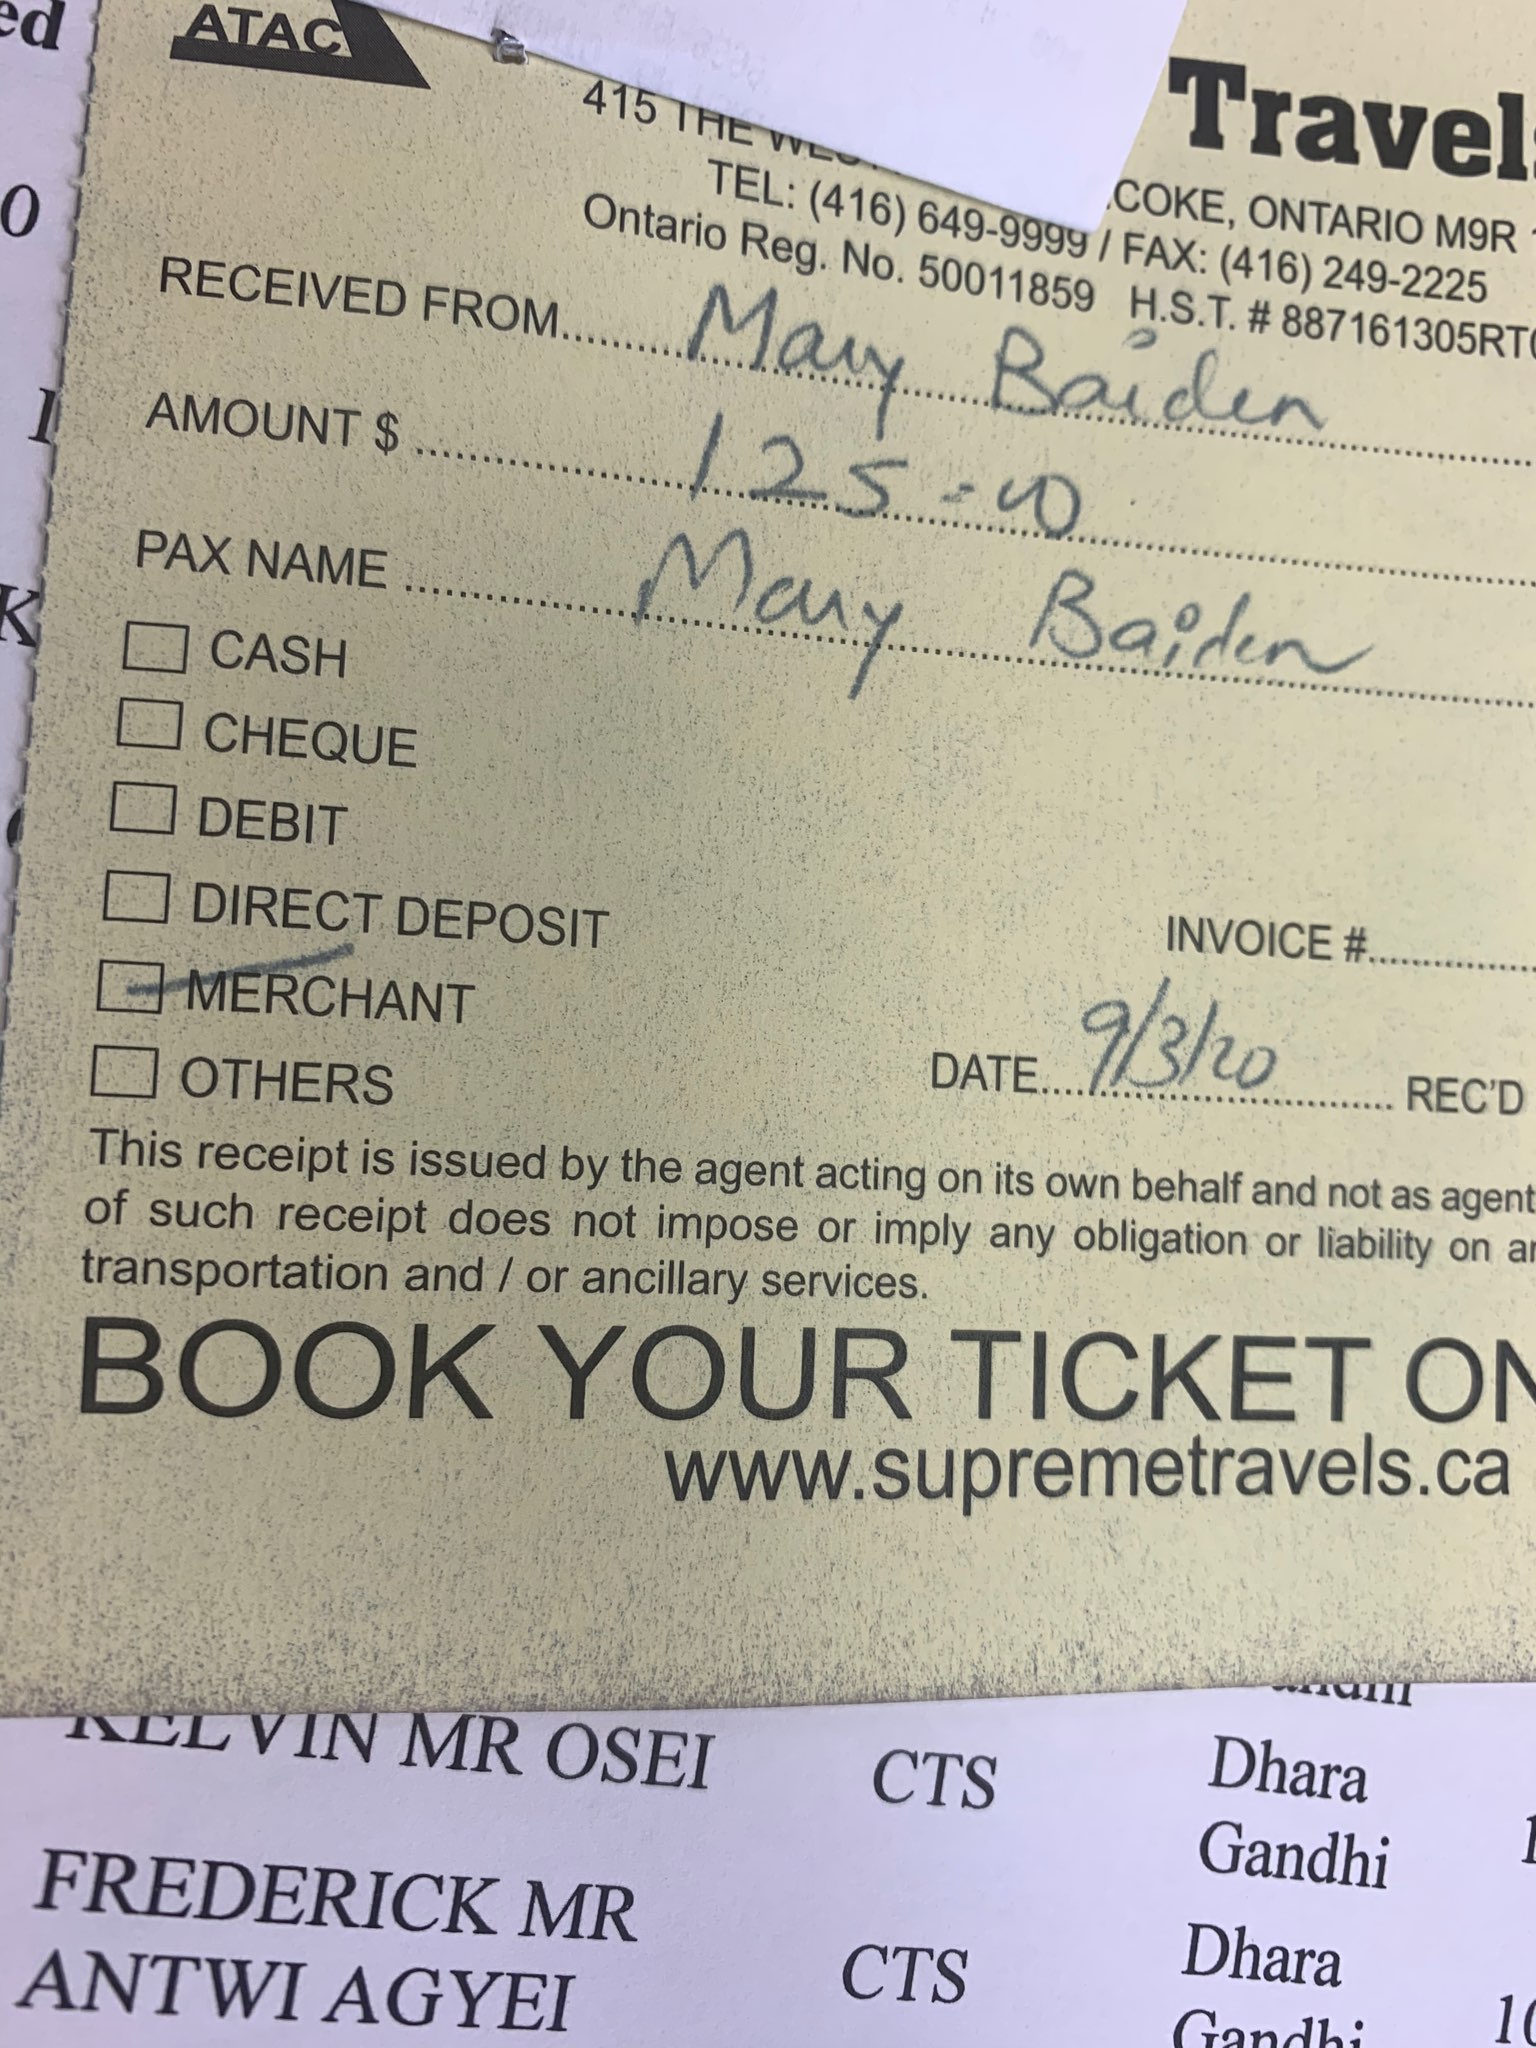 ed
ATAC
Travels
415 THE
COKE, ONTARIO M9R
TEL: (416) 649-9999 / FAX: (416) 249-2225
Ontario Reg. No. 50011859 H.S.T. # 887161305RT
RECEIVED FROM Mary Baiden
AMOUNT $ 125-00
PAX NAME Mary Baiden
CASH
CHEQUE
DEBIT
DIRECT DEPOSIT
MERCHANT
OTHERS
INVOICE #
DATE 9/3/20 REC'D
This receipt is issued by the agent acting on its own behalf and not as agent
of such receipt does not impose or imply any obligation or liability on
transportation and / or ancillary services.
BOOK YOUR TICKET ON
www.supremetravels.ca
KELVIN MR OSEI CTS Dhara
Gandhi
FREDERICK MR
ANTWI AGYEI CTS Dhara
Gandhi